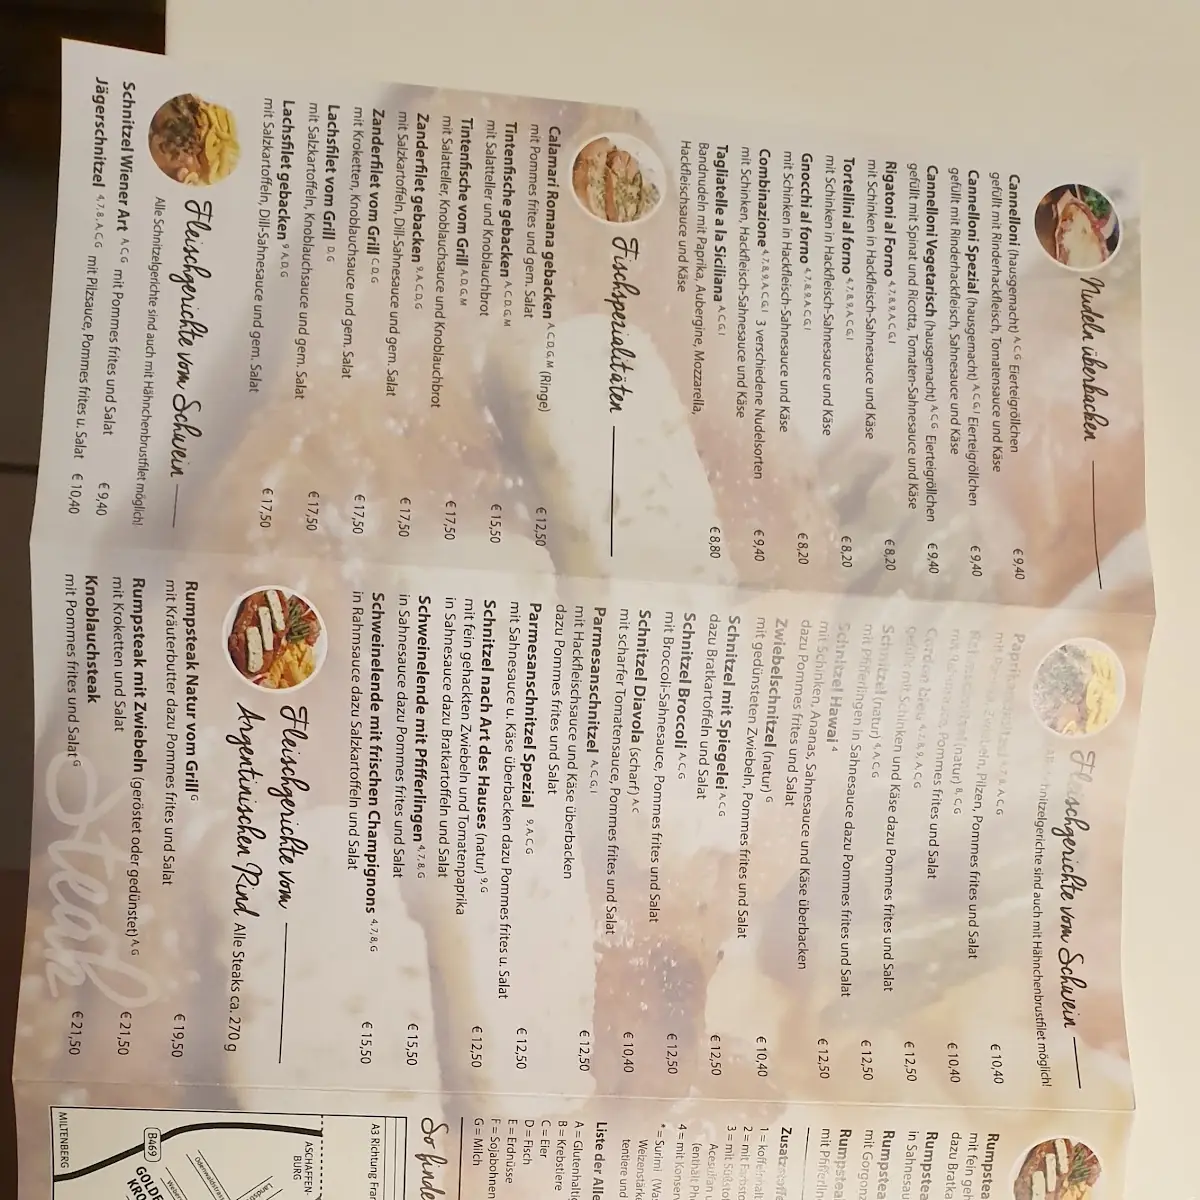 Nudeln überbacken
Cannelloni (hausgemacht) A, C, G Eierteigröllchen
gefüllt mit Rinderhackfleisch, Tomatensauce und Käse € 9,40
Cannelloni Spezial (hausgemacht) A, C, G, I Eierteigröllchen
gefüllt mit Rinderhackfleisch, Sahnesauce und Käse € 9,40
Cannelloni Vegetarisch (hausgemacht) A, C, G Eierteigröllchen
gefüllt mit Spinat und Ricotta, Tomaten-Sahnesauce und Käse € 9,40
Rigatoni al Forno 4, 7, 8, 9, A, C, G, I
mit Schinken in Hackfleisch-Sahnesauce und Käse € 8,20
Tortellini al forno 4, 7, 8, 9, A, C, G, I
mit Schinken in Hackfleisch-Sahnesauce und Käse € 8,20
Gnocchi al forno 4, 7, 8, 9, A, C, G, I
mit Schinken in Hackfleisch-Sahnesauce und Käse € 8,20
Combinazione 4, 7, 8, 9, A, C, G, I 3 verschiedene Nudelsorten
mit Schinken, Hackfleisch-Sahnesauce und Käse € 9,40
Tagliatelle a la Siciliana A, C, G, I
Bandnudeln mit Paprika, Aubergine, Mozzarella,
Hackfleischsauce und Käse € 8,80
Fischspezialitäten
Calamari Romana gebacken A, C, D, G, M (Ringe)
mit Pommes frites und gem. Salat € 12,50
Tintenfische gebacken A, C, D, G, M
mit Salatteller und Knoblauchbrot € 15,50
Tintenfische vom Grill A, D, G, M
mit Salatteller, Knoblauchsauce und Knoblauchbrot € 17,50
Zanderfilet gebacken 9, A, C, D, G
mit Salzkartoffeln, Dill-Sahnesauce und gem. Salat € 17,50
Zanderfilet vom Grill C, D, G
mit Kroketten, Knoblauchsauce und gem. Salat € 17,50
Lachsfilet vom Grill D, G
mit Salzkartoffeln, Knoblauchsauce und gem. Salat € 17,50
Lachsfilet gebacken 9, A, D, G
mit Salzkartoffeln, Dill-Sahnesauce und gem. Salat € 17,50
Fleischgerichte vom Schwein
Alle Schnitzelgerichte sind auch mit Hähnchenbrustfilet möglich!
Schnitzel Wiener Art A, C, G mit Pommes frites und Salat € 9,40
Jägerschnitzel 4, 7, 8, A, C, G mit Pilzsauce, Pommes frites u. Salat € 10,40
Fleischgerichte vom Schwein
Schnitzelgerichte sind auch mit Hähnchenbrustfilet möglich!
Zwiebeln, Pilzen, Pommes frites und Salat € 10,40
(natur) 8, C, G
Pommes frites und Salat € 10,40
Cordon bleu 4, 7, 8, 9, A, C, G
gefüllt mit Schinken und Käse dazu Pommes frites und Salat € 12,50
Schnitzel (natur) 4, A, C, G
mit Pfifferlingen in Sahnesauce dazu Pommes frites und Salat € 12,50
Schnitzel Hawai 4
mit Schinken, Ananas, Sahnesauce und Käse überbacken
dazu Pommes frites und Salat € 12,50
Zwiebelschnitzel (natur) G
mit gedünsteten Zwiebeln, Pommes frites und Salat € 10,40
Schnitzel mit Spiegelei A, C, G
dazu Bratkartoffeln und Salat € 12,50
Schnitzel Broccoli A, C, G
mit Broccoli-Sahnesauce, Pommes frites und Salat € 12,50
Schnitzel Diavola (scharf) A, C
mit scharfer Tomatensauce, Pommes frites und Salat € 10,40
Parmesanschnitzel A, C, G, I
mit Hackfleischsauce und Käse überbacken
dazu Pommes frites und Salat € 12,50
Parmesanschnitzel Spezial 9, A, C, G
mit Sahnesauce u. Käse überbacken dazu Pommes frites u. Salat € 12,50
Schnitzel nach Art des Hauses (natur) 9, G
mit fein gehackten Zwiebeln und Tomatenpaprika
in Sahnesauce dazu Bratkartoffeln und Salat € 12,50
Schweinelende mit Pfifferlingen 4, 7, 8, G
in Sahnesauce dazu Pommes frites und Salat € 15,50
Schweinelende mit frischen Champignons 4, 7, 8, G
in Rahmsauce dazu Salzkartoffeln und Salat € 15,50
Fleischgerichte vom
Argentinischen Rind Alle Steaks ca. 270 g
Rumpsteak Natur vom Grill G
mit Kräuterbutter dazu Pommes frites und Salat € 19,50
Rumpsteak mit Zwiebeln (geröstet oder gedünstet) A, G
mit Kroketten und Salat € 21,50
Knoblauchsteak
mit Pommes frites und Salat G € 21,50
Steak
Rumpstea
mit fein geh
dazu Bratka
Rumpstea
in Sahnesau
Rumpstea
mit Gorgonz
Rumpstea
mit Pfifferlin
Zusatzstoffe
1 = koffeinhalti
2 = mit Farbsto
3 = mit Süßstof
Acesulfan u
(enthält Phe
4 = mit Konserv
* = Surimi (Was
Weizenstärke
tentiere und
Liste der Alle
A = Glutenhaltig
B = Krebstiere
C = Eier
D = Fisch
E = Erdnüsse
F = Sojabohnen
G = Milch
So finde
A3 Richtung Fran
ASCHAFFEN-
BURG
B469
MILTENBERG